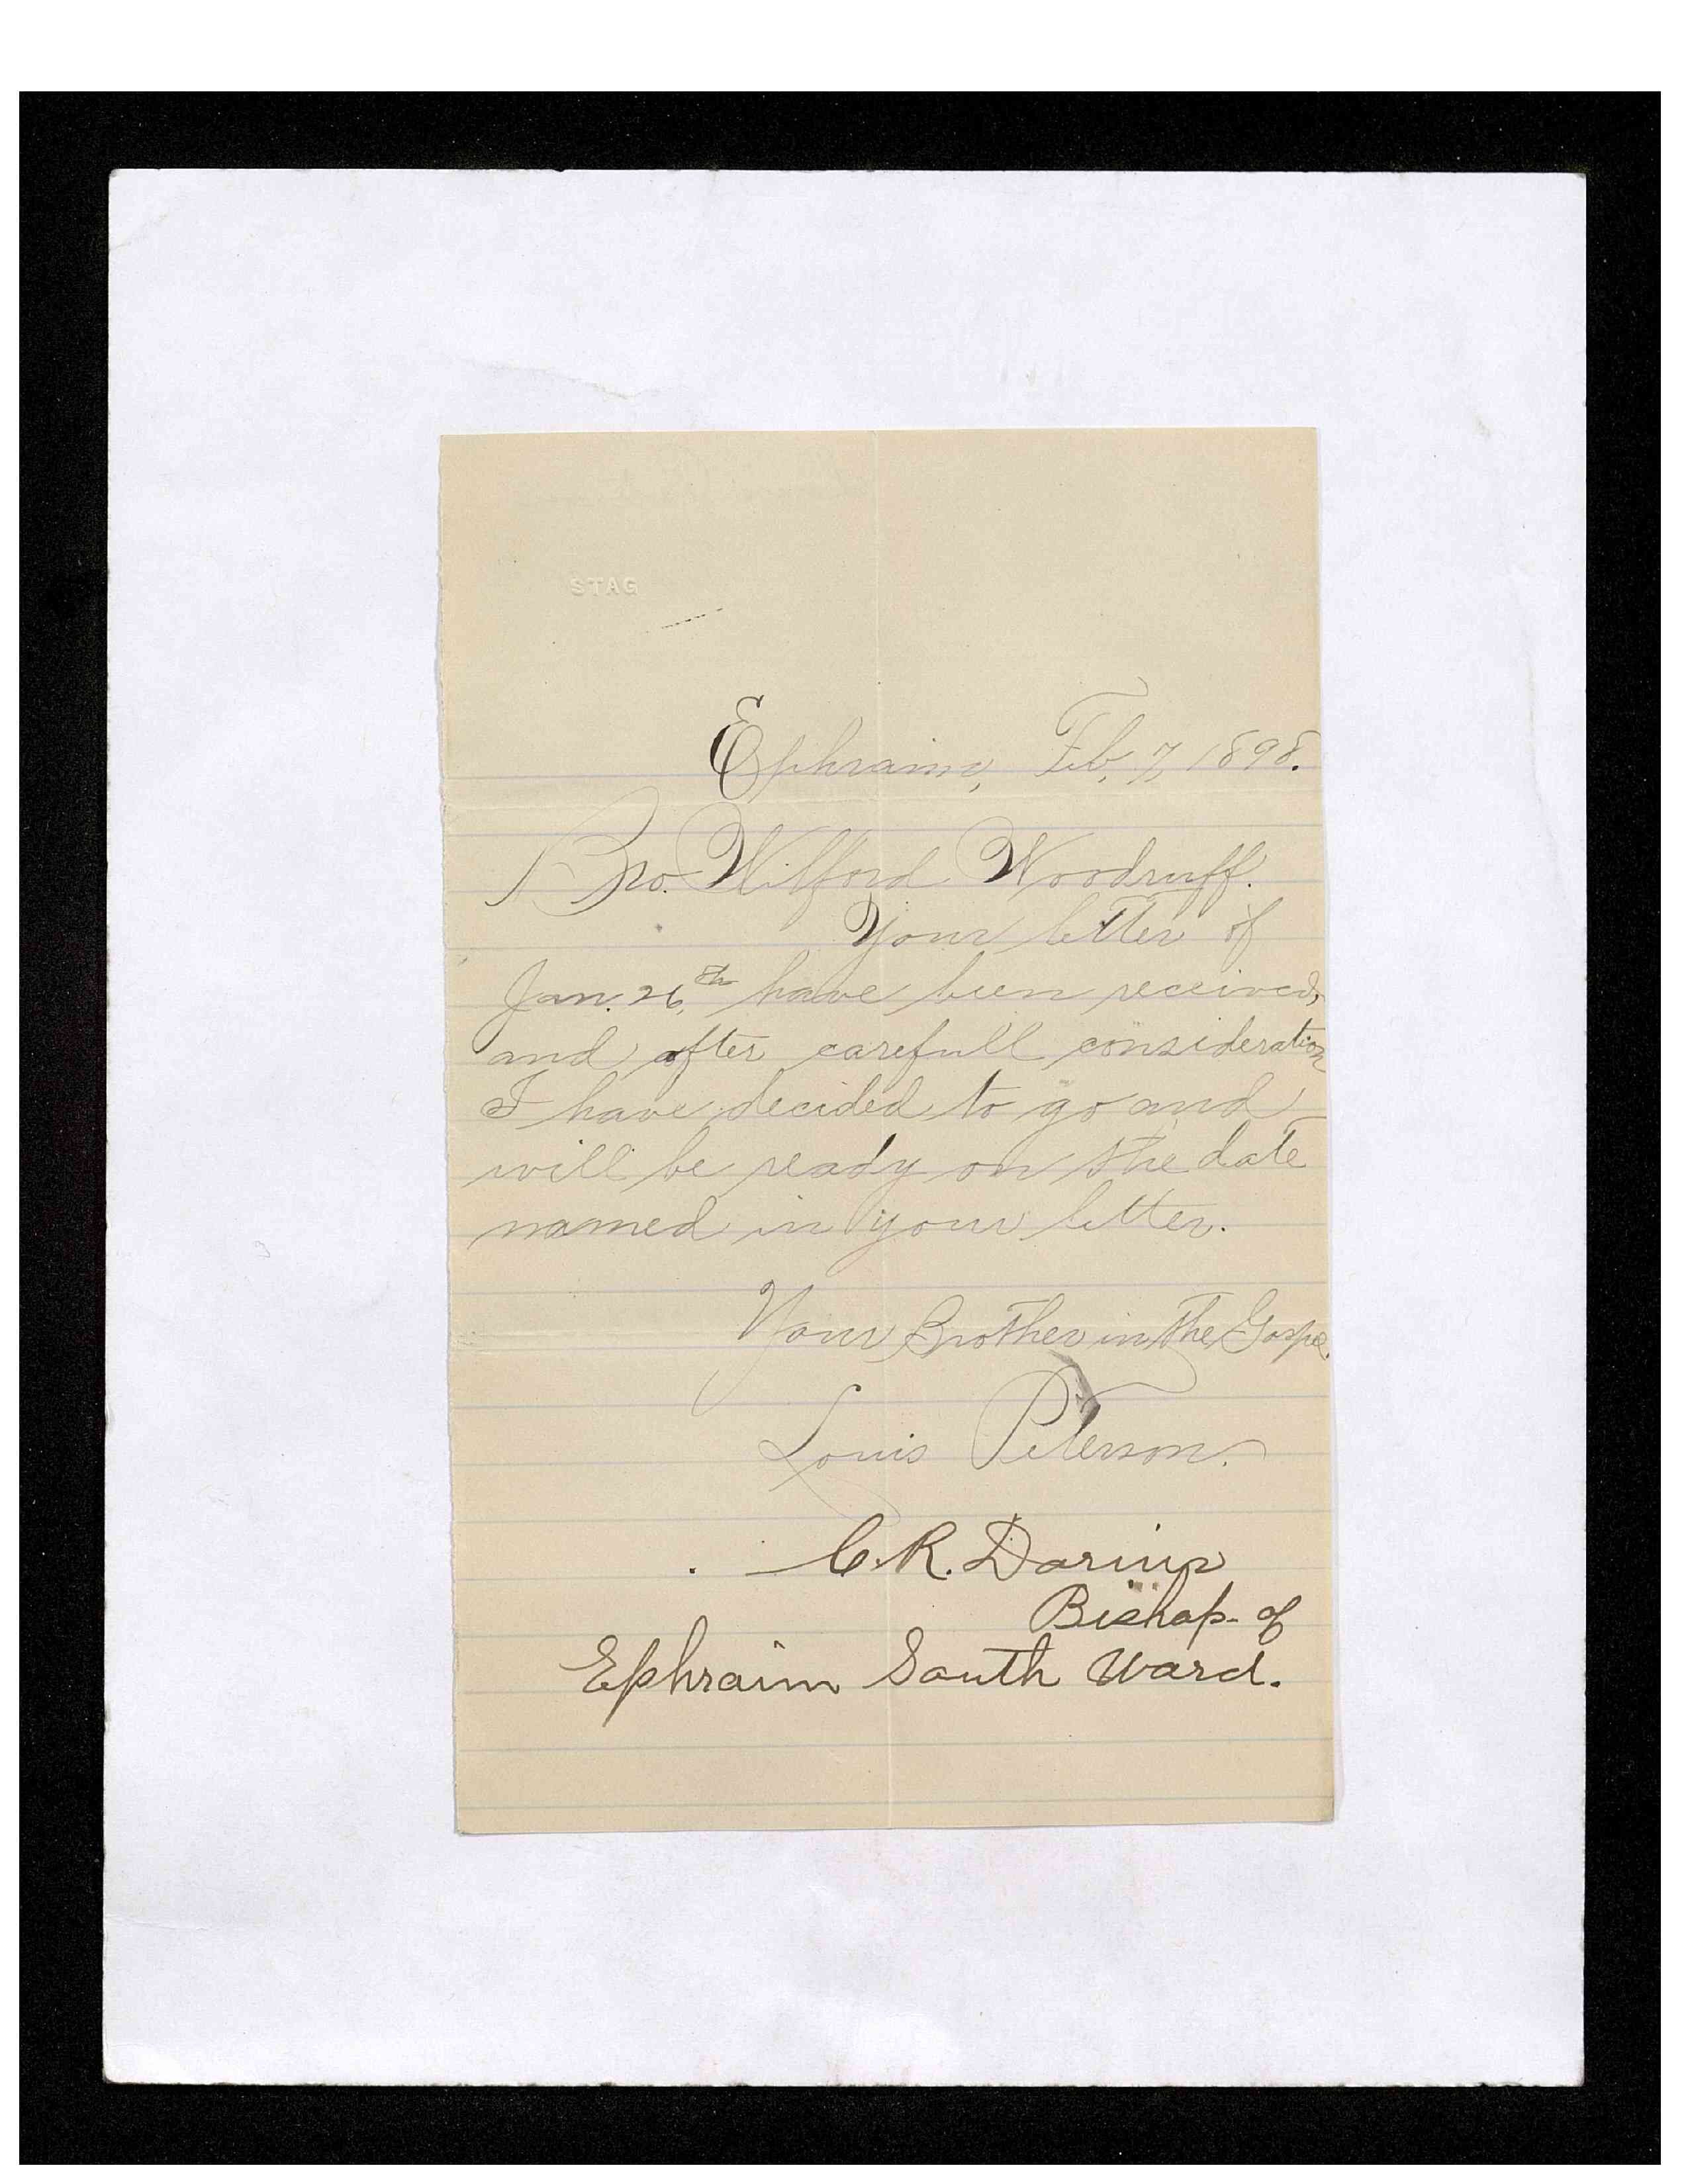 STAG
Ephraim, Feb, 7, 1898.
Bro. Wilford Woodruff.
Your letter of
Jan. 26,th have been received,
and after carefull consideration
I have decided to go and
will be ready on the date
named in your letter.
Your Brother in the Gospel.
Louis Peterson.
C. R. Dorius
Bishop of
Ephraim South Ward.